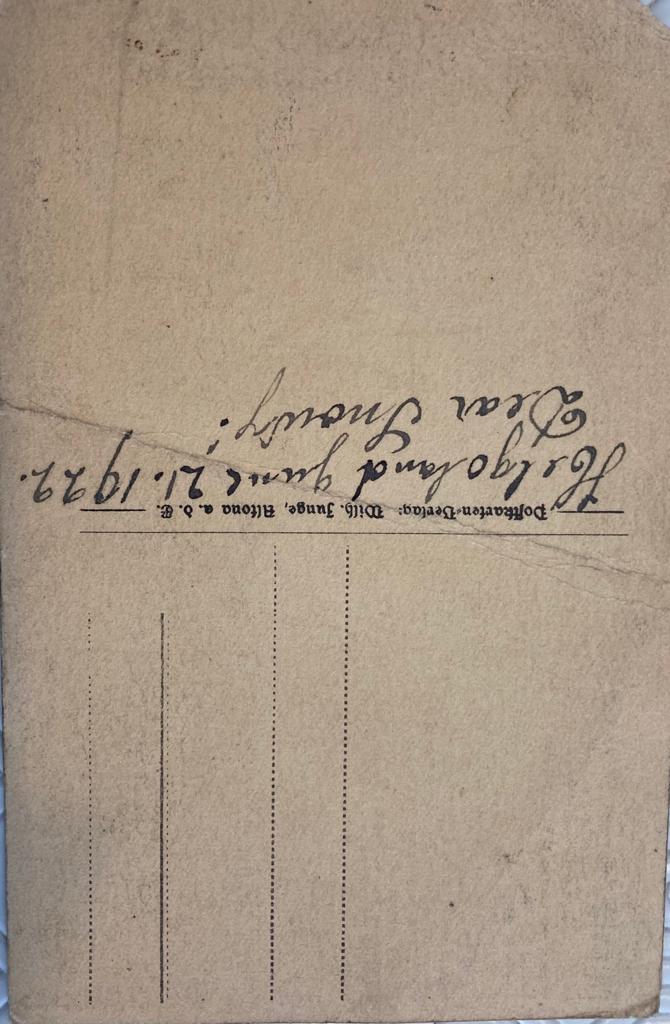 Postkarten-Verlag: Wilh. Junge, Altona a. d. E.
Helgoland June 21. 1922.
Dear Snowdy!